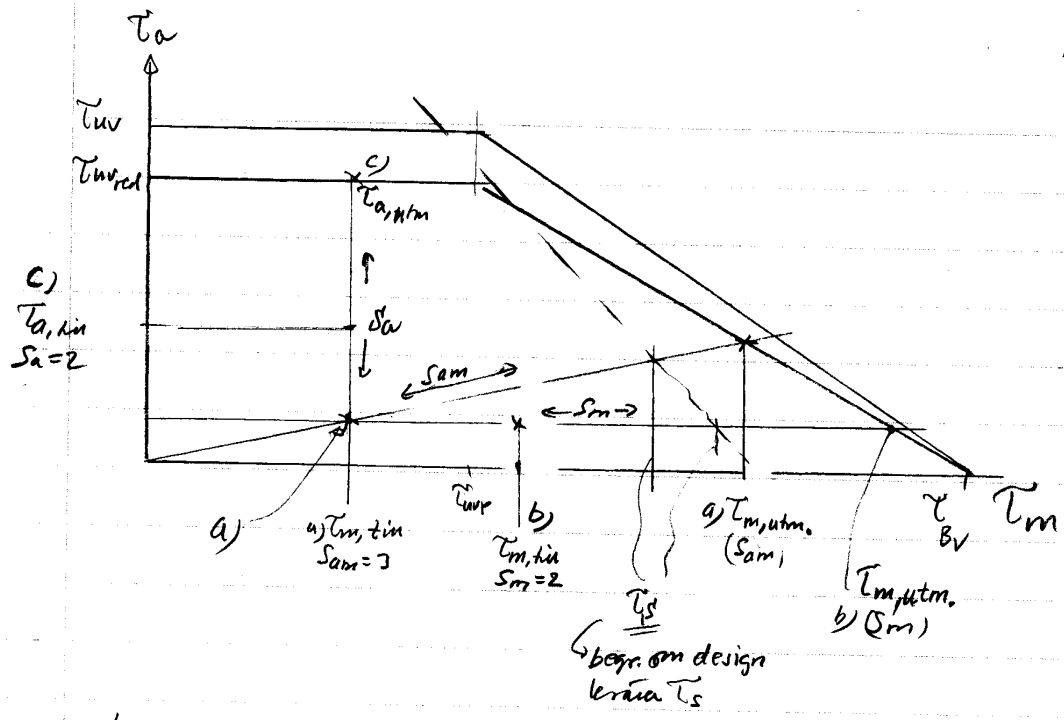 τa
τuv
τuv,red
c)
τa,utm
c)
τa,tin
Sa=2
Sa
Sam
Sm
a)
τuvp
a) τm,tin
Sam=3
b)
τm,tin
Sm=2
a) τm,utm.
(Sam)
τBv
τm
τs
begr. om design
τs
τm,utm.
b) (Sm)